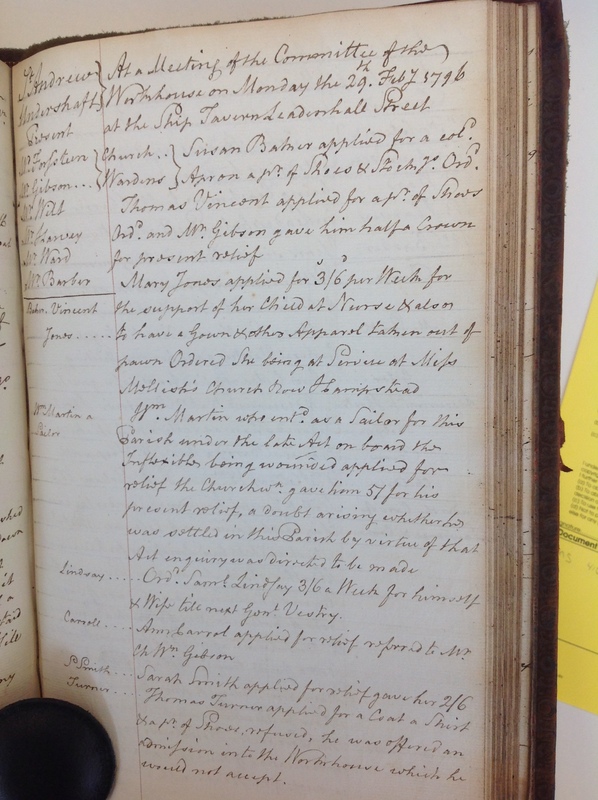 St. Andrew
Undershaft
Present
Mr. Gibson...
Mr. Wilt
Mr. Harvey
Mr. Ward
Mr. Barber
At a Meeting of the Committee of the
Workhouse on Monday the 29th. Feby 1796
at the Ship Tavern Leadenhall Street
Church.. Susan Balmer applied for a cold.
Wardens Apron a pr. of Shoes & Stockgs. Ord.
Thomas Vincent applied for a pr. of Shoes
Ord. and Mr. Gibson gave him half a Crown
for present relief
Mary Jones applied for 3s/6d per Week for
Vincent
the support of her Child at Nurse & also
Jones.....
to have a Gown & other Apparel taken out of
pawn Ordered She being at Service at Miss
Mellish's Church Row Hampstead
Wm. Martin a
Sailor
Wm. Martin who entd. as a Sailor for this
Parish under the late Act on board the
Inflexible, being wounded applied for
relief the Churchwn. gave him 5/ for his
present relief, a doubt arising whether he
was settled in this Parish by virtue of that
Act enquiry was directed to be made
Lindsay.....
Ord. Saml. Lindsay 3/6 a Week for himself
& Wife till next Genl. Vestry.
Carroll....
Ann Carrol applied for relief referred to Mr.
Ch. Wn. Gibson
S. Smith...
Sarah Smith applied for relief gave her 2/6
Turner...
Thomas Turner applied for a Coat a Shirt
& a pr. of Shoes, refused, he was offered an
admission into the Workhouse which he
would not accept.
Document